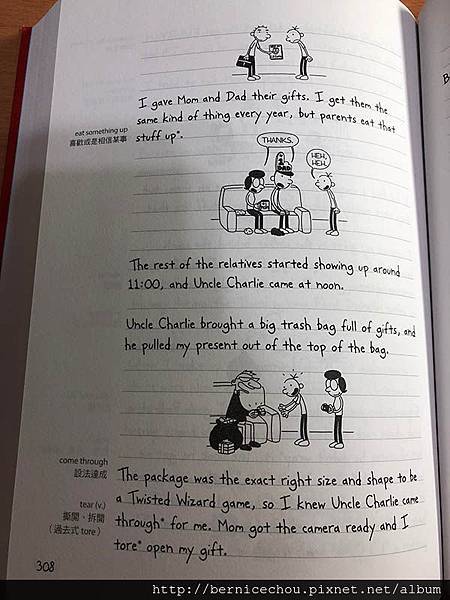 I gave Mom and Dad their gifts. I get them the
same kind of thing every year, but parents eat that
stuff up*.
eat something up
喜歡或是相信某事
THANKS.
HEH,
HEH.
#1
DAD
The rest of the relatives started showing up around
11:00, and Uncle Charlie came at noon.
Uncle Charlie brought a big trash bag full of gifts, and
he pulled my present out of the top of the bag.
come through
設法達成
The package was the exact right size and shape to be
a Twisted Wizard game, so I knew Uncle Charlie came
through* for me. Mom got the camera ready and I
tore* open my gift.
tear (v.)
撕開、拆開
（過去式 tore）
308
http://bernicechou.pixnet.net/album